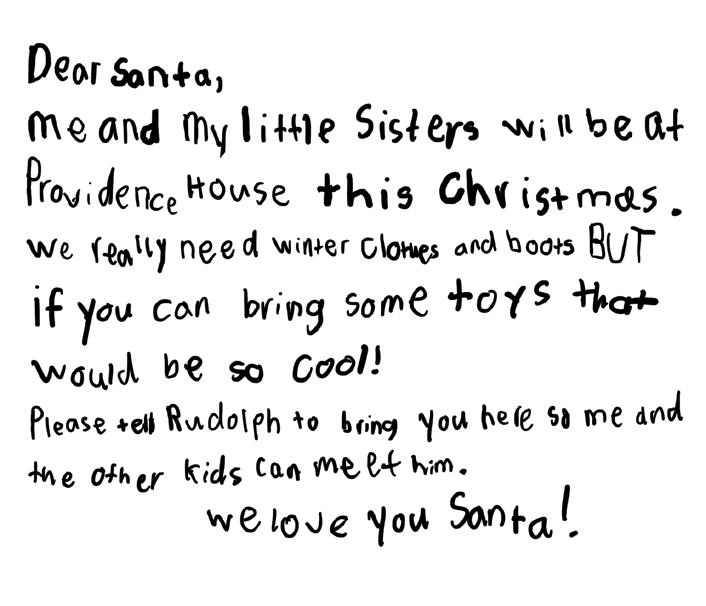 Dear Santa,
me and my little Sisters will be at
Providence House this Christmas.
we really need winter clothes and boots BUT
if you can bring some toys that
would be so cool!
Please tell Rudolph to bring you here so me and
the other kids can meet him.
we love you Santa!